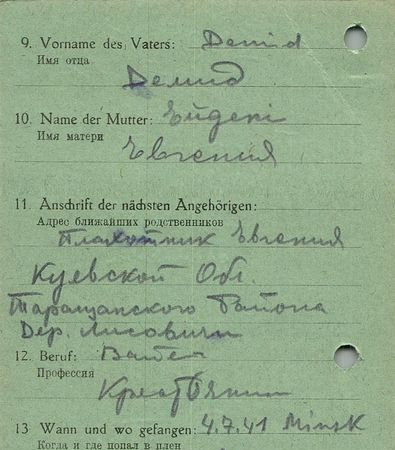 9. Vorname des Vaters: Demid
Имя отца
Демид
10. Name der Mutter:
Имя матери
Евгения
11. Anschrift der nächsten Angehörigen:
Адрес ближайших родственников
Плахотник Евгения
Куевской Обл.
Таращанского Района
Дер. Лисовичи
12. Beruf:
Профессия
13 Wann und wo gefangen: 4.7.41 Minsk
Когда и где попал в плен